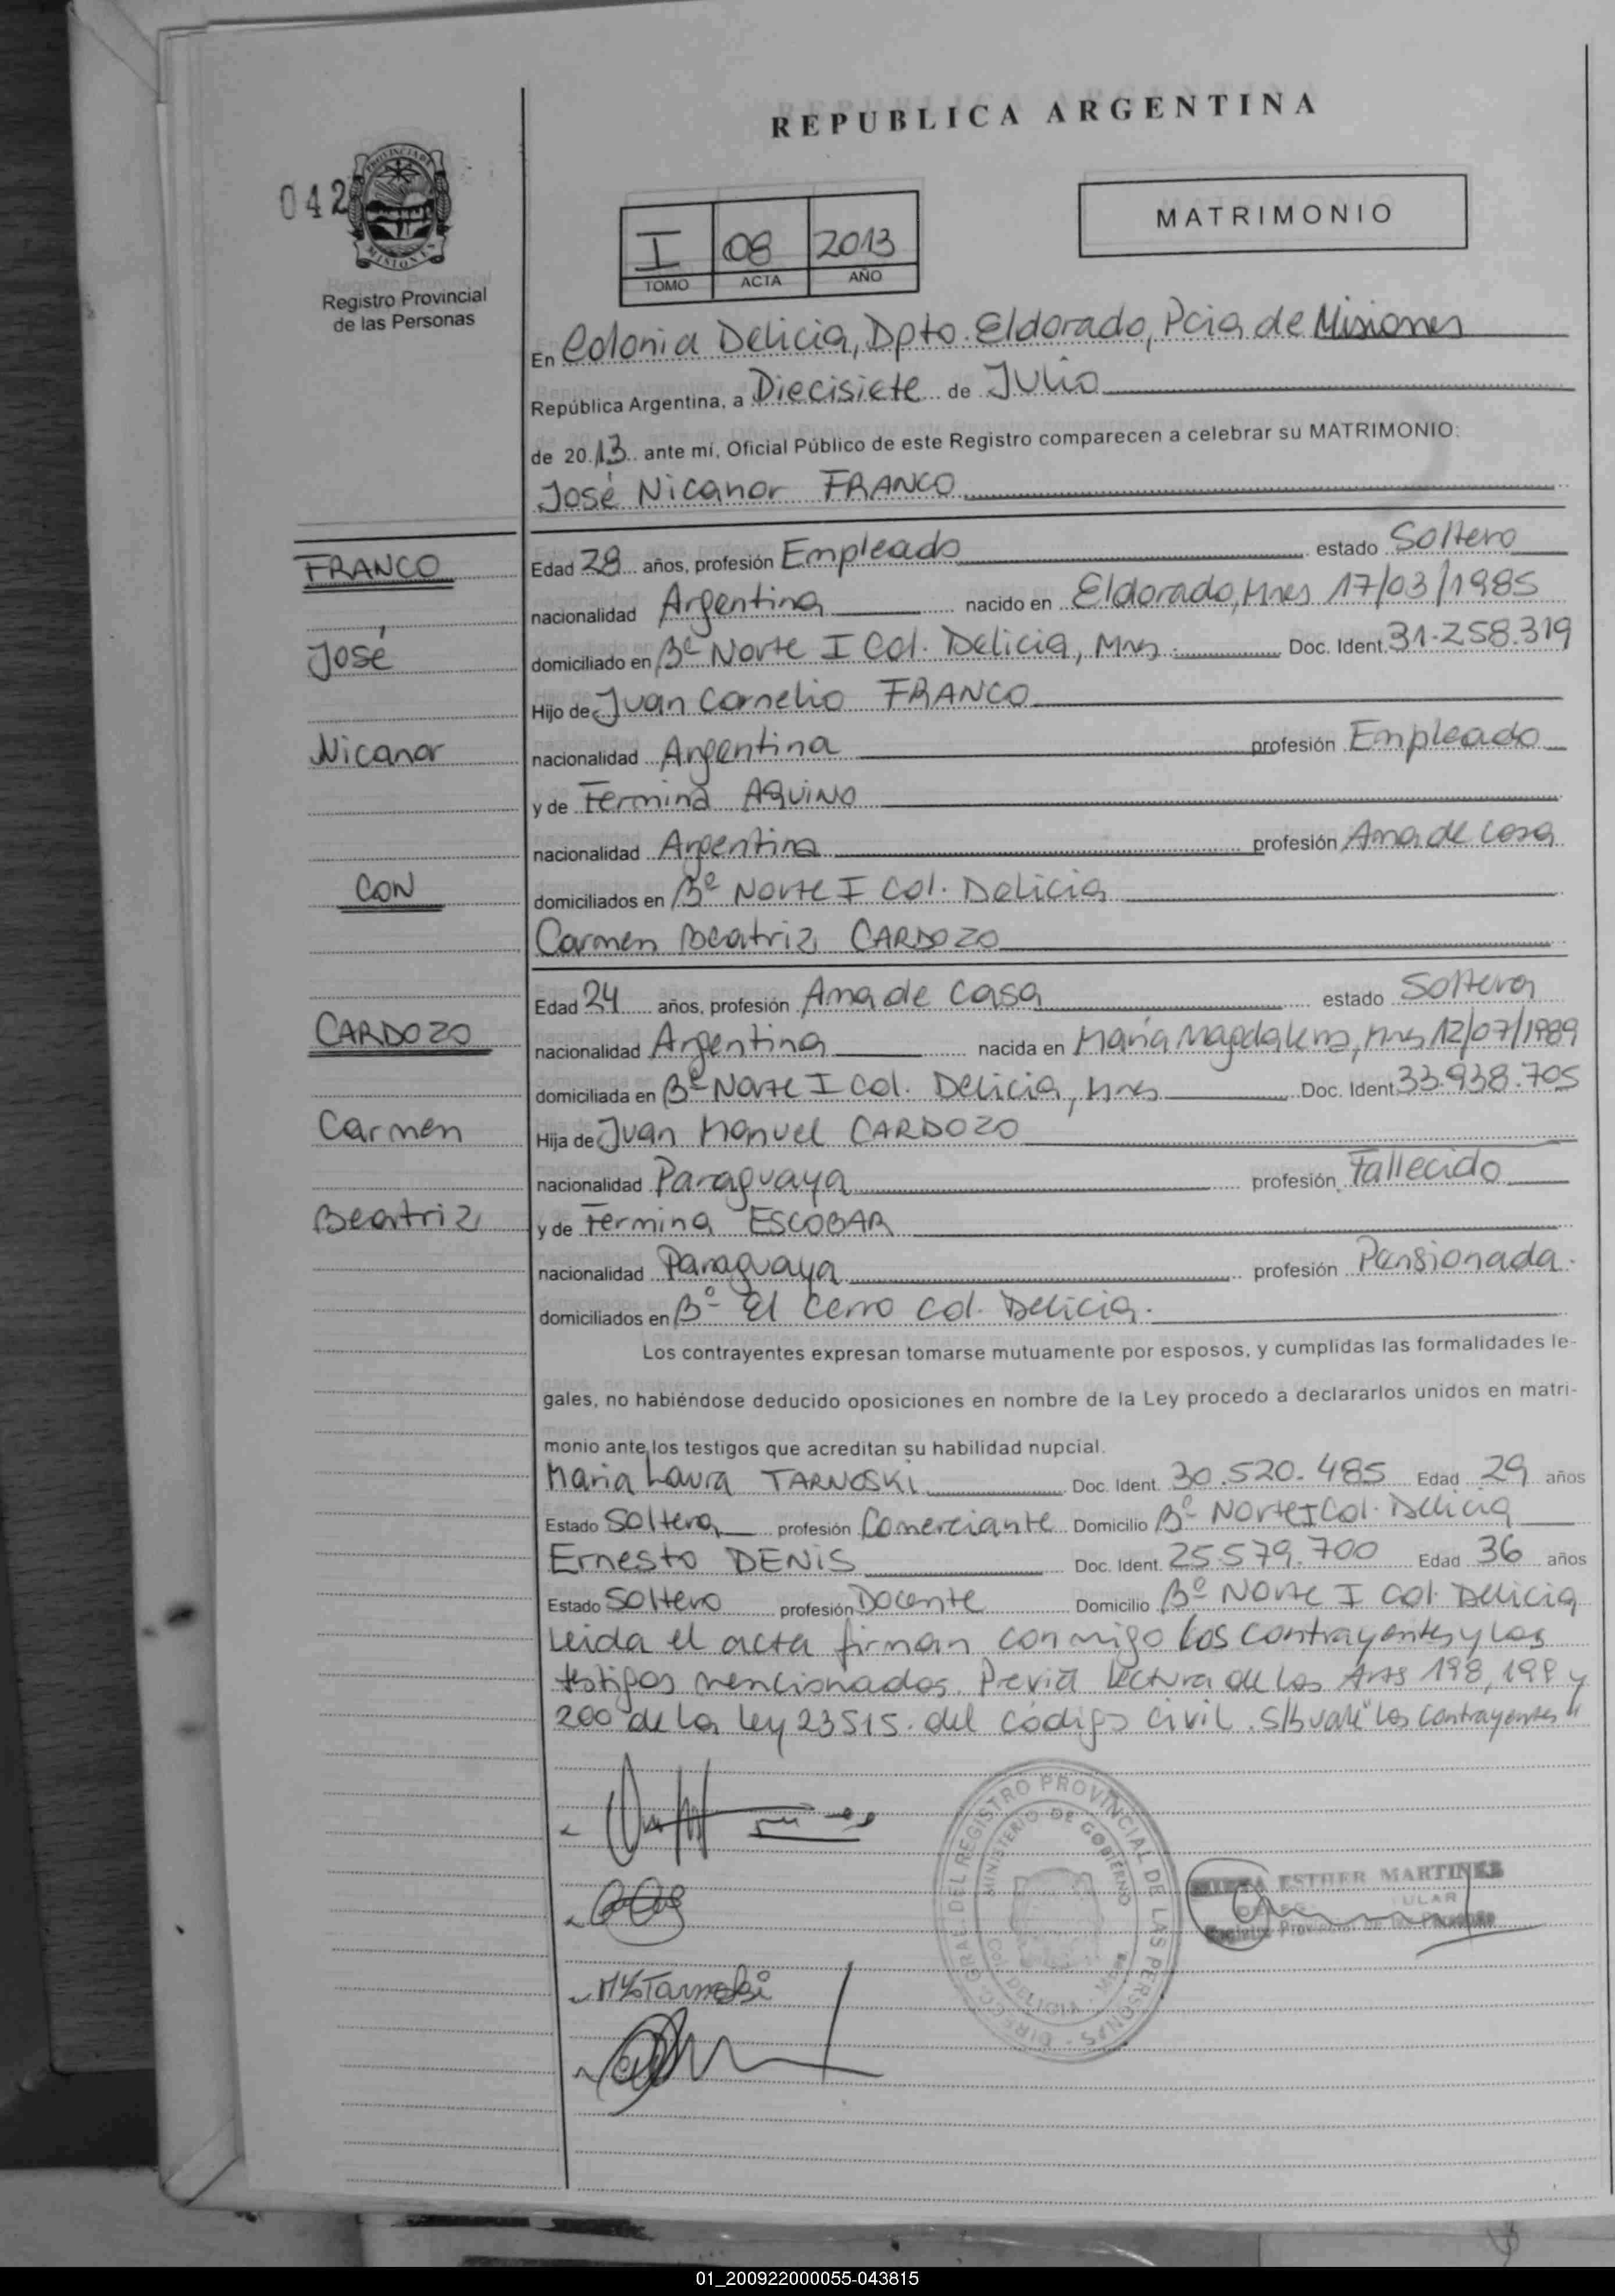 REPUBLICA ARGENTINA
042
PROVINCIA DE
MISIONES
Registro Provincial
de las Personas
I 08 2013
TOMO ACTA AÑO
MATRIMONIO
En Colonia Delicia, Dpto. Eldorado, Pcia de Misiones
República Argentina, a Diecisiete de Julio
de 2013 ante mí, Oficial Público de este Registro comparecen a celebrar su MATRIMONIO:
José Nicanor FRANCO
FRANCO
José
Nicanor
CON
CARDOZO
Carmen
Beatriz
Edad 28 años, profesión Empleado estado Soltero
nacionalidad Argentina nacido en Eldorado, Mnes 17/03/1985
domiciliado en Bº Norte I Col. Delicia, Mnes. Doc. Ident. 31.258.319
Hijo de Juan Cornelio FRANCO
nacionalidad Argentina profesión Empleado
y de Fermina AQUINO
nacionalidad Argentina profesión Ama de casa
domiciliados en Bº Norte I Col. Delicia
Carmen Beatriz CARDOZO
Edad 24 años, profesión Ama de casa estado Soltera
nacionalidad Argentina nacida en María Magdalena, Mnes 12/07/1989
domiciliada en Bº Norte I Col. Delicia, Mnes Doc. Ident. 33.938.705
Hija de Juan Manuel CARDOZO
nacionalidad Paraguaya profesión Fallecido
y de Fermina ESCOBAR
nacionalidad Paraguaya profesión Pensionada.
domiciliados en Bº El Cerro Col. Delicia.
Los contrayentes expresan tomarse mutuamente por esposos, y cumplidas las formalidades le-
gales, no habiéndose deducido oposiciones en nombre de la Ley procedo a declararlos unidos en matri-
monio ante los testigos que acreditan su habilidad nupcial.
Maria Laura TARNOSKI Doc. Ident. 30.520.485 Edad 29 años
Estado Soltera profesión Comerciante Domicilio Bº Norte I Col. Delicia
Ernesto DENIS Doc. Ident. 25.579.700 Edad 36 años
Estado Soltero profesión Docente Domicilio Bº Norte I Col. Delicia
Leida el acta firman conmigo los contrayentes y los
testigos mencionados. Previa lectura de los Arts 198, 199 y
200 de la ley 23515. del código civil. S/b vale "Los contrayentes"
DIRECC. GRAL. DEL REGISTRO PROVINCIAL DE LAS PERSONAS
MINISTERIO DE GOBIERNO
Col. DELICIA - Mnes
ESTHER MARTINEZ
Registro Provincial de las Personas
MLTarnoski
01_200922000055-043815